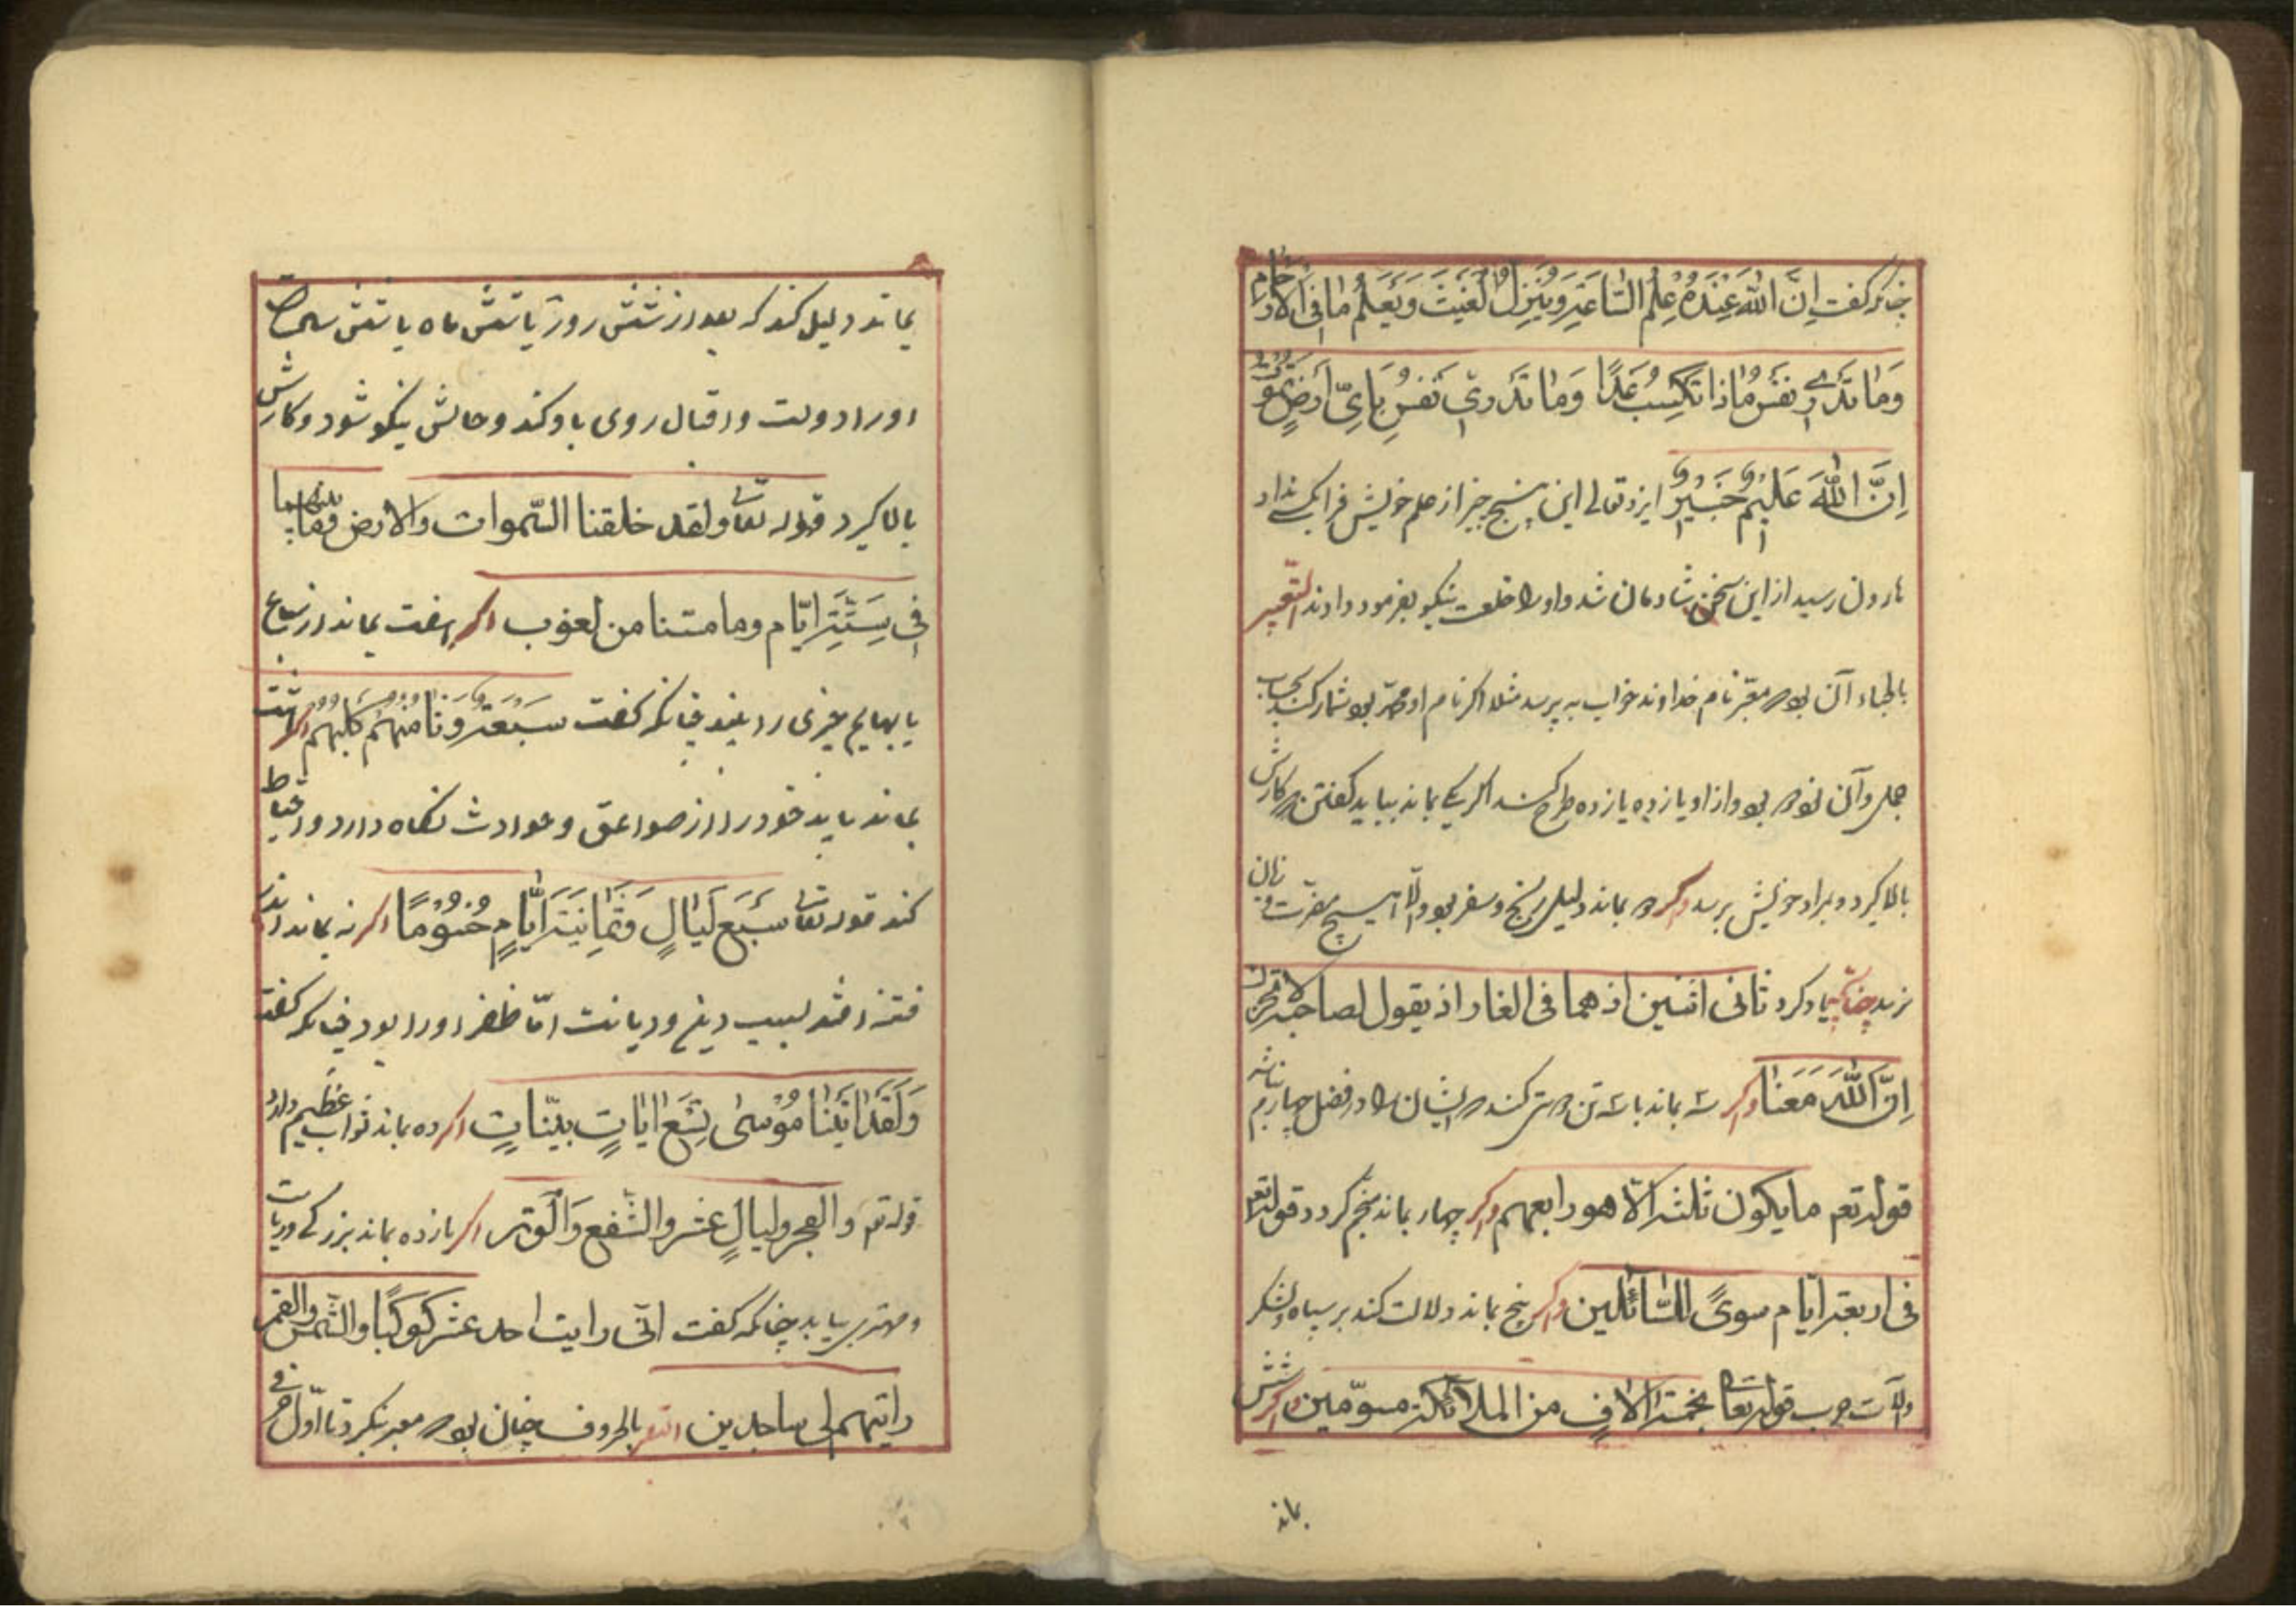 چنانکه گفت اِنَّ اللهَ عِنْدَهُ عِلْمُ السّاعَةِ وَيُنَزِّلُ الْغَيْثَ وَيَعْلَمُ مَا فِی الْاَرْحَامِ
وَمَا تَدْرِی نَفْسٌ مَاذَا تَكْسِبُ غَدًا وَمَا تَدْرِی نَفْسٌ بِاَیِّ اَرْضٍ تَمُوتُ
اِنَّ اللهَ عَلِيمٌ خَبِيرٌ ایزد تعالی این پنج چیز از علم خویش فرا کس نداد
هارون رسید از این سخن شادمان شد و او را خلعت نیکو بفرمود دادند التعبیر
آن بود که معبر نام خداوند خواب به پرسد مثلا اگر نام او محمد بود شمار کند بحساب
جمل و آن نود و دو بود و از او یازده یازده طرح کند اگر یکی بماند بباید گفتن که کارش
بالا گیرد و بمراد خویش برسد و اگر دو بماند دلیل رنج و سفر بود و الا هیچ مضرت و زیان
نرسد چنانکه یاد کرد ثانی اثنین اذ هما فی الغار اذ یقول لصاحبه لا تحزن
اِنَّ اللهَ مَعَنَا و اگر سه بماند با سه تن کند که ایشان را در فضل چهارم نباشد
قوله تعم ما یکون ثلثه الّا هو رابعهم و اگر چهار بماند گردد قوله تعم
فی اربعة ایّام سویً للسّائلین و اگر پنج بماند دلالت کند بر سپاه و لشکر
و آلات حرب قوله تعا بخمسة الاف من الملائکة مسوّمین و اگر شش
بماند
بماند دلیل کند که بعد از شش روز یا شش ماه یا شش سال
او را دولت و اقبال روی باو کند و حالش نیکو شود و کارش
بالا گیرد قوله تعا ولقد خلقنا السّموات والارض وما بینهما
فی سِتَّةِ ایّام وما مسّنا من لغوب اگر هفت بماند از سباع
یا بهایم چیزی را بیند چنانکه گفت سَبْعَةٌ وَثَامِنُهُمْ كَلْبُهُمْ اگر هشت
بماند باید خود را از صواعق و حوادث نگاه دارد و احتیاط
کند قوله تعا سَبْعَ لَيَالٍ وَثَمَانِيَةَ اَيَّامٍ حُسُومًا اگر نه بماند اندر
فتنه افتد بسبب دین و دیانت امّا ظفر او را بود چنانکه گفت
وَلَقَدْ اٰتَيْنَا مُوسٰی تِسْعَ اٰيَاتٍ بَيِّنَاتٍ اگر ده بماند ثواب عظیم دارد
قوله تعم والفجر ولیالٍ عشر والشّفع وَالْوَتر اگر یازده بماند بزرگی و ریاست
و مهتری بیابد چنانکه گفت انّی رایت احد عشر کَوْکَبًا والشّمس والقمر
رایتهم لی ساجدین التعبیر بالحروف چنان بود که معبر بنگرد تا اوّل حرفی